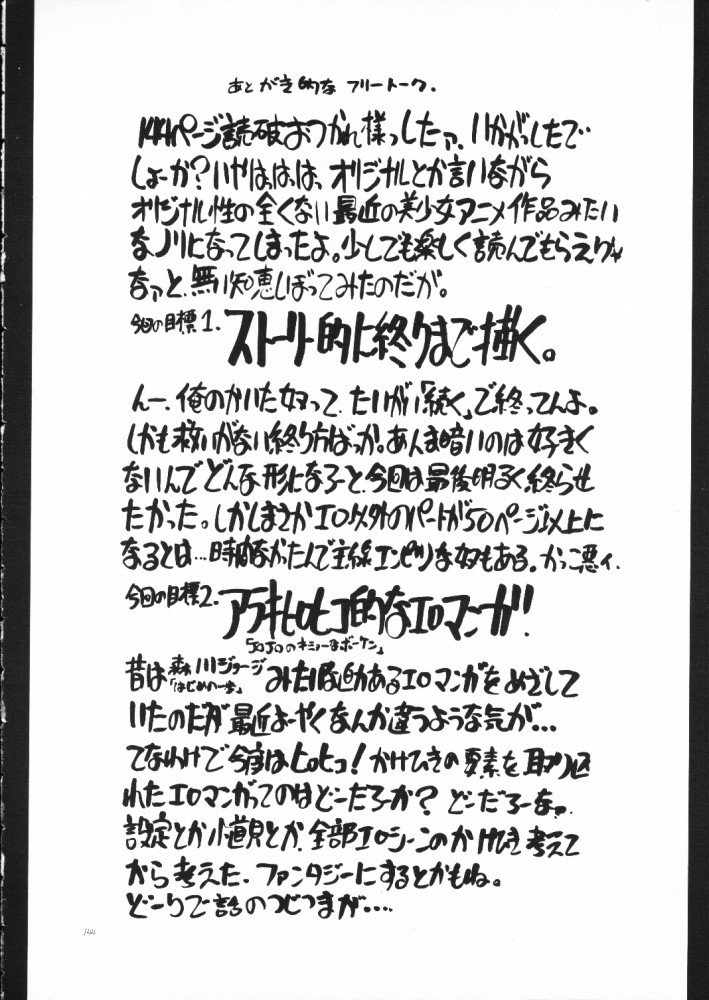 あとがき的な フリートーク.
144ページ読破おつかれ様っしたァ、いかがっしたで
しょーか?いやはははは、オリジナルとか言いながら
オリジナル性の全くない最近の美少女アニメ作品みたい
なノリになってしまったよ。少しでも楽しく読んでもらえりゃ
なァと、無い知恵しぼってみたのだが。
今回の目標1. ストーリー的に終りまで描く。
んー、俺のかいた奴って、たいがい「続く」で終ってんよ。
しかも救いがない終り方ばっか。あんま暗いのは好きく
ないんでどんな形になろーと、今回は最後明るく終らせ
たかった。しかしまさかエロ以外のパートが50ページ以上に
なるとは…時間なかたんで主線エンピツな奴もある。かっこ悪ィ.
今回の目標2. アラキヒロヒコ的なエロマンガ!
「JOJOのキミョーなボーケン」
昔は森川ジョージ「はじめの一歩」みたいな迫力あるエロマンガをめざして
いたのだが最近よーやくなんか違うような気が…
てなわけで今度はヒロヒコ!かけひきの要素を取り込
れたエロマンガってのはどーだろーか?どーだろーなァ.
設定とか小道具とか、全部エロシーンのかけひき考えて
から考えた、ファンタジーにするとかもね。
どーりで話のつじつまが….
144